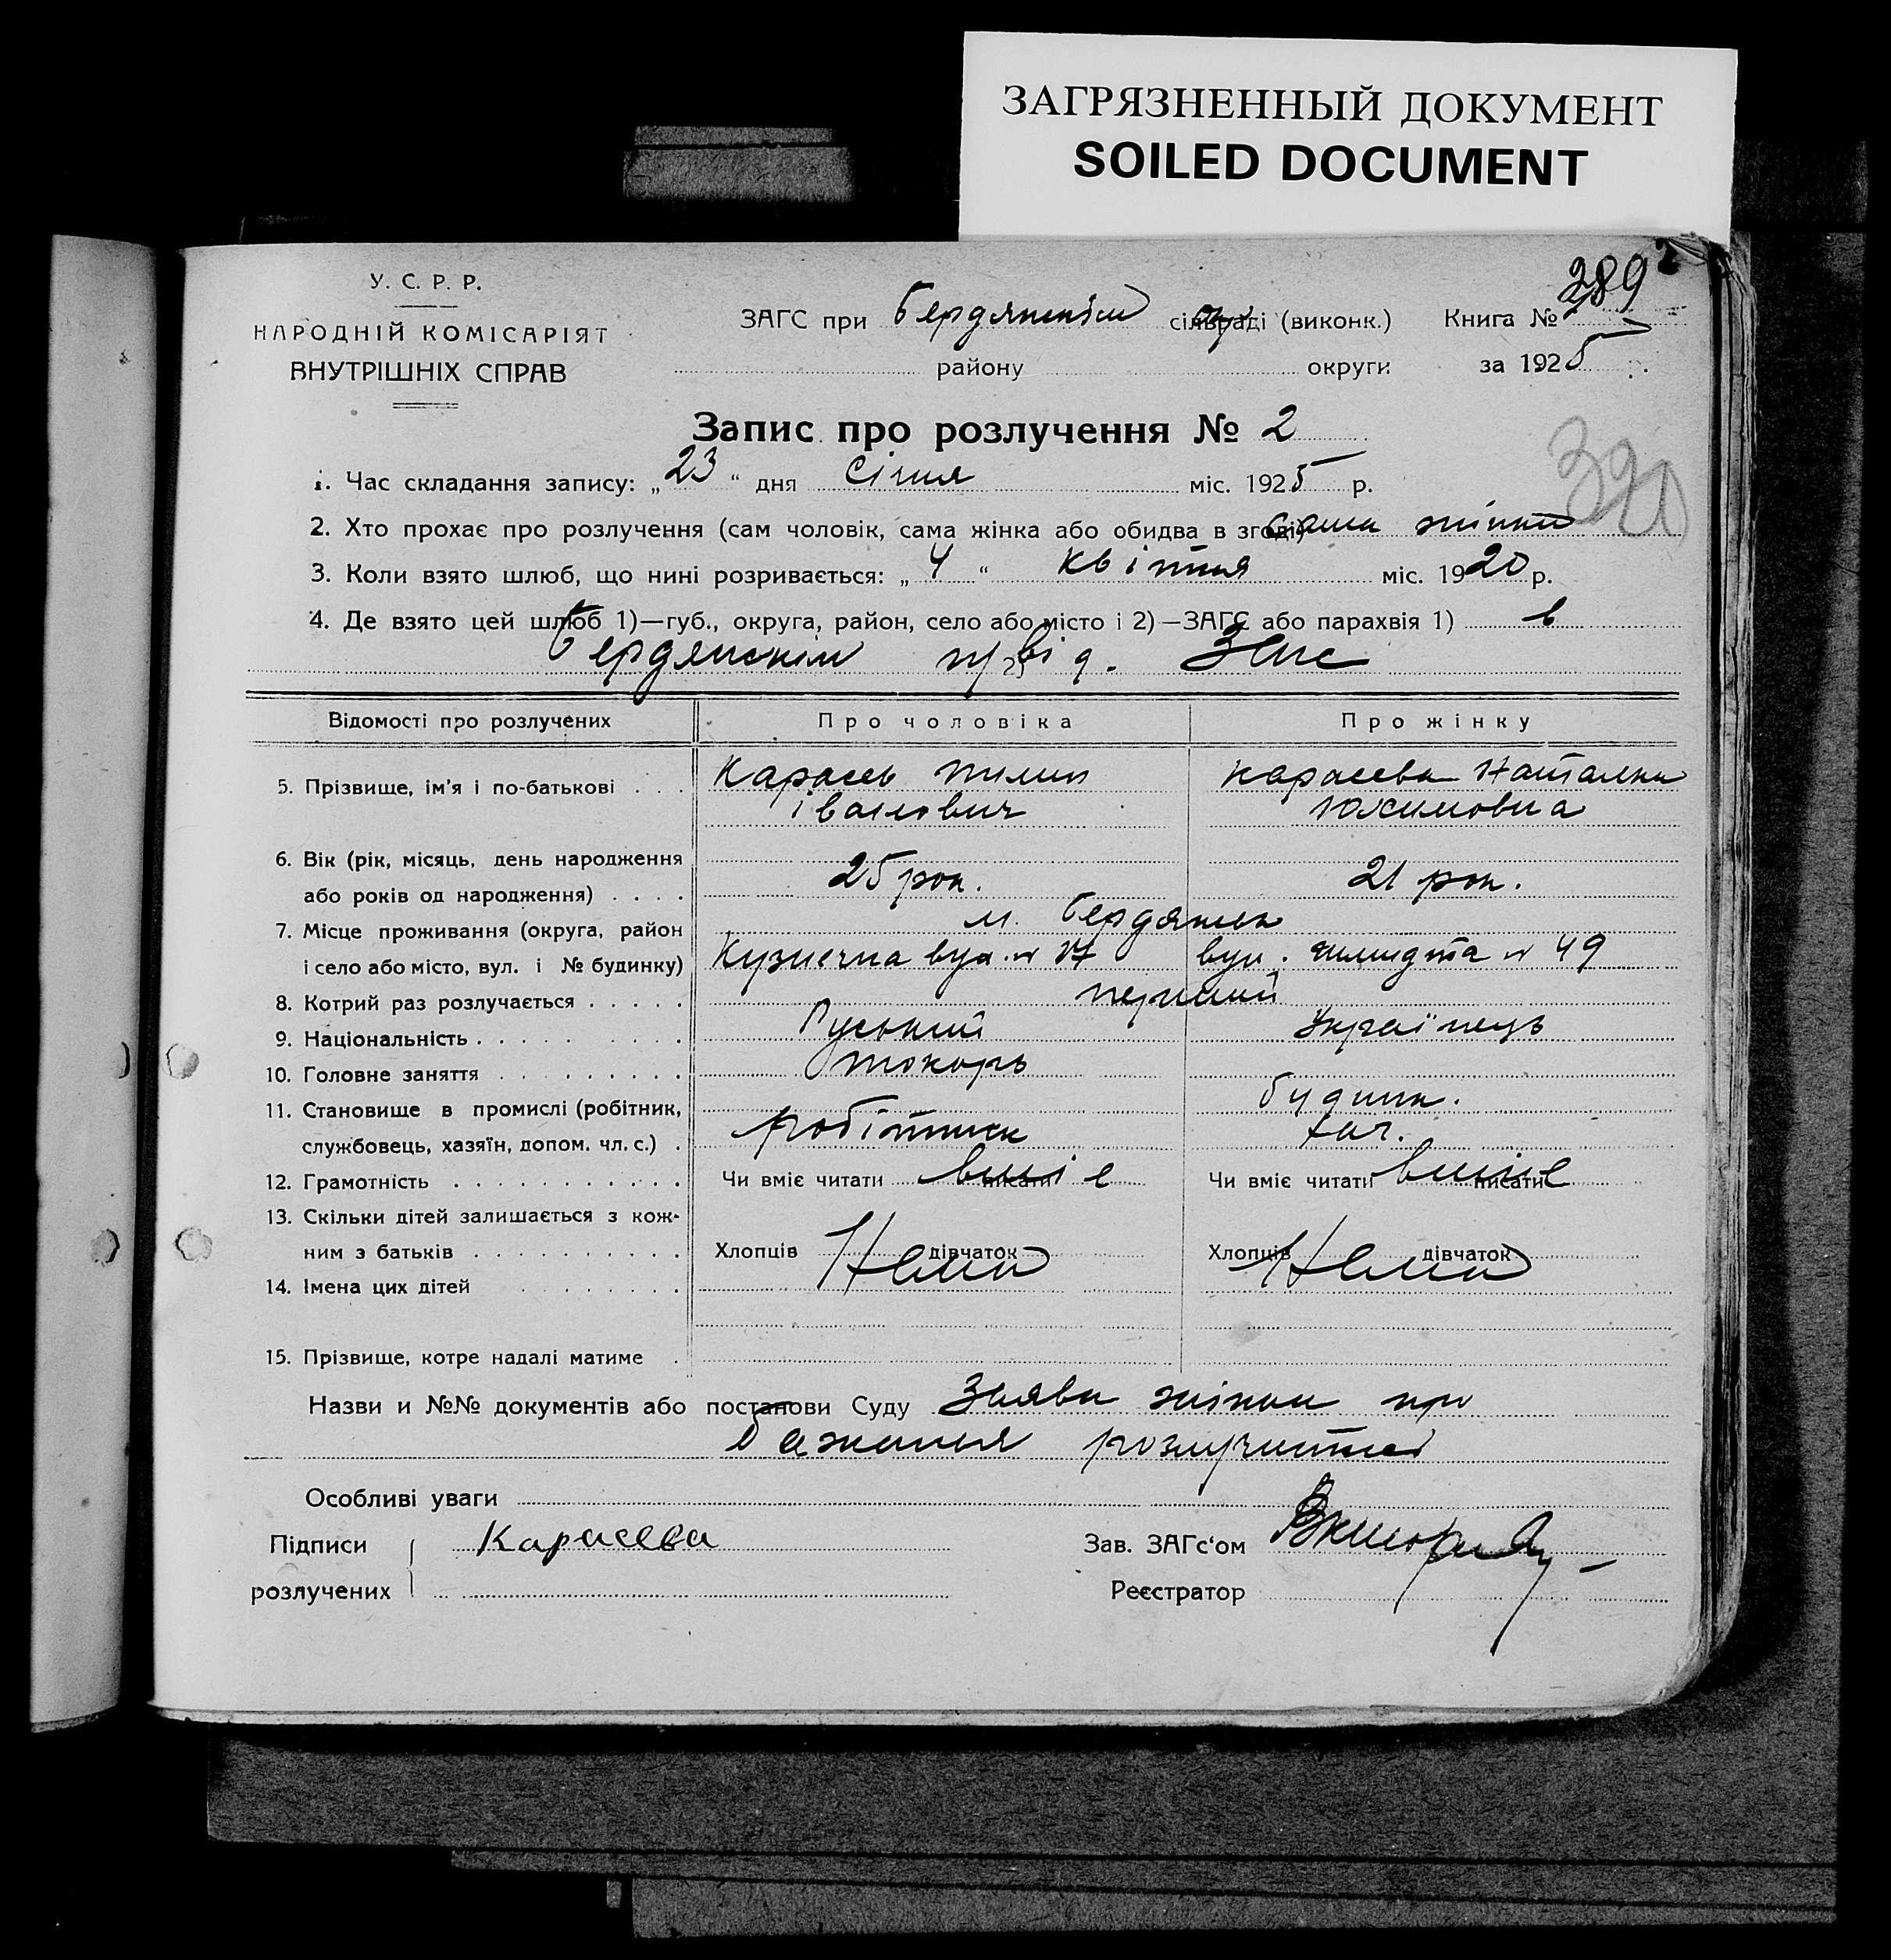 ЗАГРЯЗНЕННЫЙ ДОКУМЕНТ
SOILED DOCUMENT
У. С. Р. Р.
НАРОДНІЙ КОМІСАРІЯТ
ВНУТРІШНІХ СПРАВ
389
ЗАГС при Бердянськім сільраді (виконк.) Книга №
району округи за 1925 р.
Запис про розлучення № 2
390
1. Час складання запису: „23“ дня Січня міс. 1925 р.
2. Хто прохає про розлучення (сам чоловік, сама жінка або обидва в згоді) сама жінка
3. Коли взято шлюб, що нині розривається: „4“ Квітня міс. 1920 р.
4. Де взято цей шлюб 1)—губ., округа, район, село або місто і 2)—ЗАГС або парахвія 1) в
Бердянскім п/від. Загс
Відомості про розлучених Про чоловіка Про жінку
5. Прізвище, ім'я і по-батькові Карась Пилип Карасева Наталка
Іванович Юхимовна
6. Вік (рік, місяць, день народження
або років од народження) 25 рок. 21 рок.
7. Місце проживання (округа, район м. Бердянськ
і село або місто, вул. і № будинку) Кузнечна вул. № 37 вул. Шмидта № 49
8. Котрий раз розлучається перший
9. Національність Руський Українець
10. Головне заняття токарь
11. Становище в промислі (робітник, будинк.
службовець, хазяїн, допом. чл. с.) робітник
12. Грамотність Чи вміє читати писати вміє Чи вміє читати писати вміє
13. Скільки дітей залишається з кож-
ним з батьків Хлопців дівчаток Нема Хлопців дівчаток Нема
14. Імена цих дітей
15. Прізвище, котре надалі матиме
Назви и №№ документів або постанови Суду Заява жінки про
бажання розлучитися
Особливі уваги
Підписи Карасева Зав. ЗАГс'ом
розлучених Реєстратор